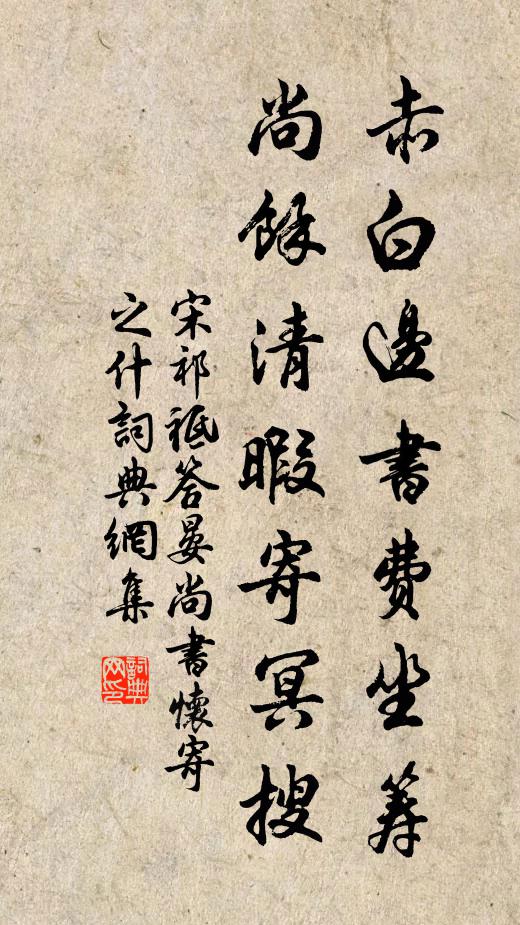 赤白邊書費坐筭
尚餘清暇寄冥搜
宋祁祗答晏尚書懷寄
之什詞典網集
詞典
网印